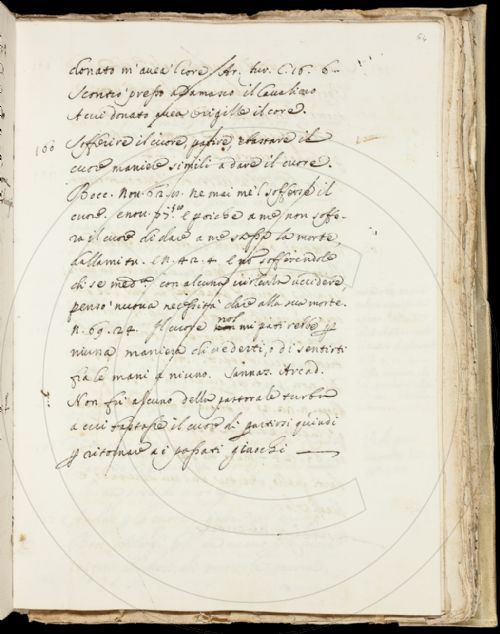 64
donato m'avea 'l core. Ar. fur. C. 16. 6.
Scontrò presso a Damasco il Cavaliero
A cui donato avea Origille il core.
100 Sofferire il cuore, patire, e bastare il
cuore maniere simili a dare il cuore.
Bocc. nov. 62. 10. ne mai me 'l sofferse il
cuore. e nov. 77. E poiche a me non soffe-
ra il cuore di dare a me stessa la morte,
dallami tu. E N. 42. 4. E sofferendole
di se med.ª con alcuna uccidere,
pensò nuova necessità dare alla sua morte.
N. 69. 24. Il cuore nol mi patirebbe p
niuna maniera di vederti, o di sentirti
fra le mani a niuno. Sannaz. Arcad.
Non fu alcuno della pastorale turba
a cui bastasse il cuore di partirsi quindi
p ritornare a i passati giuochi